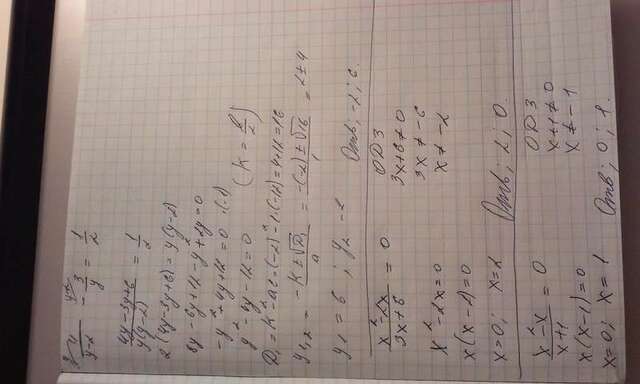 4/(y-2) - 3/y = 1/2
(4y-3y+6)/(y(y-2)) = 1/2
2(4y-3y+6) = y(y-2)
8y-6y+12-y²+2y=0
-y²+4y+12=0 ·(-1)
y²-4y-12=0 (K = b/2)
D₁=K²-ac=(-2)²-1·(-12)=4+12=16
y₁,₂ = (-K±√D₁)/a = (-(-2)±√16)/1 = 2±4
y₁=6; y₂-2 Отв; -2; 6.
(x²-2x)/(3x+6) = 0 ОДЗ
3x+6≠0
x²-2x=0 3x≠-6
x(x-2)=0 x≠-2
x=0; x=2 Отв; 2; 0.
(x²-x)/(x+1) = 0 ОДЗ
x+1≠0
x(x-1)=0 x≠-1
x=0; x=1 Отв; 0; 1.